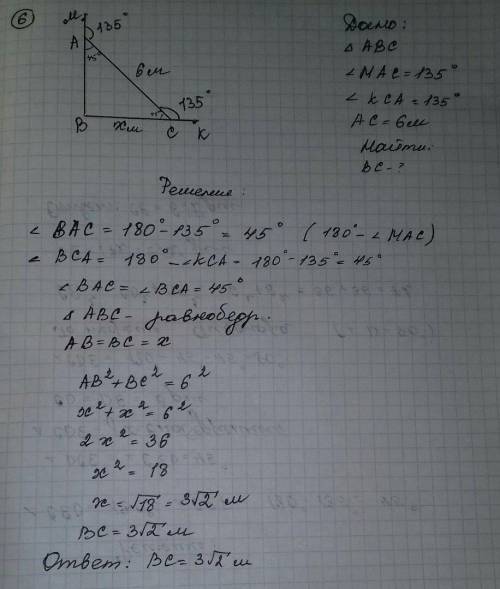 6
M
135°
A
45°
6 м
135°
45°
B
x м
C
K
Дано:
Δ ABC
∠MAC = 135°
∠KCA = 135°
AC = 6 м
Найти:
BC - ?
Решение:
∠ BAC = 180° - 135° = 45° (180° - ∠MAC)
∠ BCA = 180° - ∠KCA - 180° - 135° = 45°
∠BAC = ∠BCA = 45°
Δ ABC - равнобедр.
AB = BC = x
AB² + BC² = 6²
x² + x² = 6²
2x² = 36
x² = 18
x = √18 = 3√2 м
BC = 3√2 м
Ответ: BC = 3√2 м